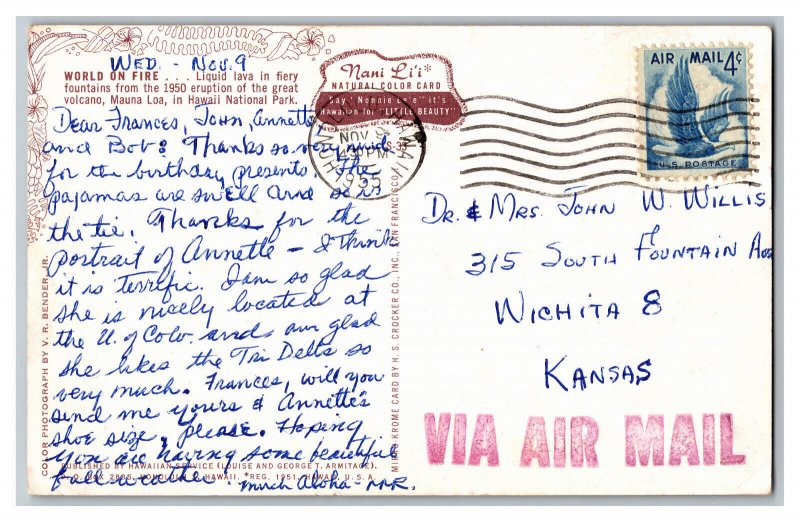 WED. - NOV. 9
WORLD ON FIRE . . . Liquid lava in fiery
fountains from the 1950 eruption of the great
volcano, Mauna Loa, in Hawaii National Park.
Dear Frances, John, Annette
and Bob: Thanks so very much
for the birthday presents. The
pajamas are swell and so is
the tie. Thanks for the
portrait of Annette - I think
it is terrific. I am so glad
she is nicely located at
the U. of Colo. and am glad
she likes the Tri Delts so
very much. Frances, will you
send me yours & Annette's
shoe size, please. Hoping
you are having some beautiful
fall weather! much aloha -
PUBLISHED BY HAWAIIAN SERVICE (LOUISE AND GEORGE T. ARMITAGE),
P. O. BOX 2835, HONOLULU, HAWAII. *REG. 1951, HAWAII, U.S.A.
COLOR PHOTOGRAPH BY V. R. BENDER, JR.
Nani Li'i*
NATURAL COLOR CARD
Say "Nannie Lee" it's
Hawaiian for "LITTLE BEAUTY"
S-35
MIRRO KROME CARD BY H. S. CROCKER CO., INC., SAN FRANCISCO
HONOLULU HAWAII
NOV 9
4 30 PM
1955
AIR MAIL 4¢
U.S. POSTAGE
DR. & MRS. JOHN W. WILLIS
315 SOUTH FOUNTAIN AVE
WICHITA 8
KANSAS
VIA AIR MAIL